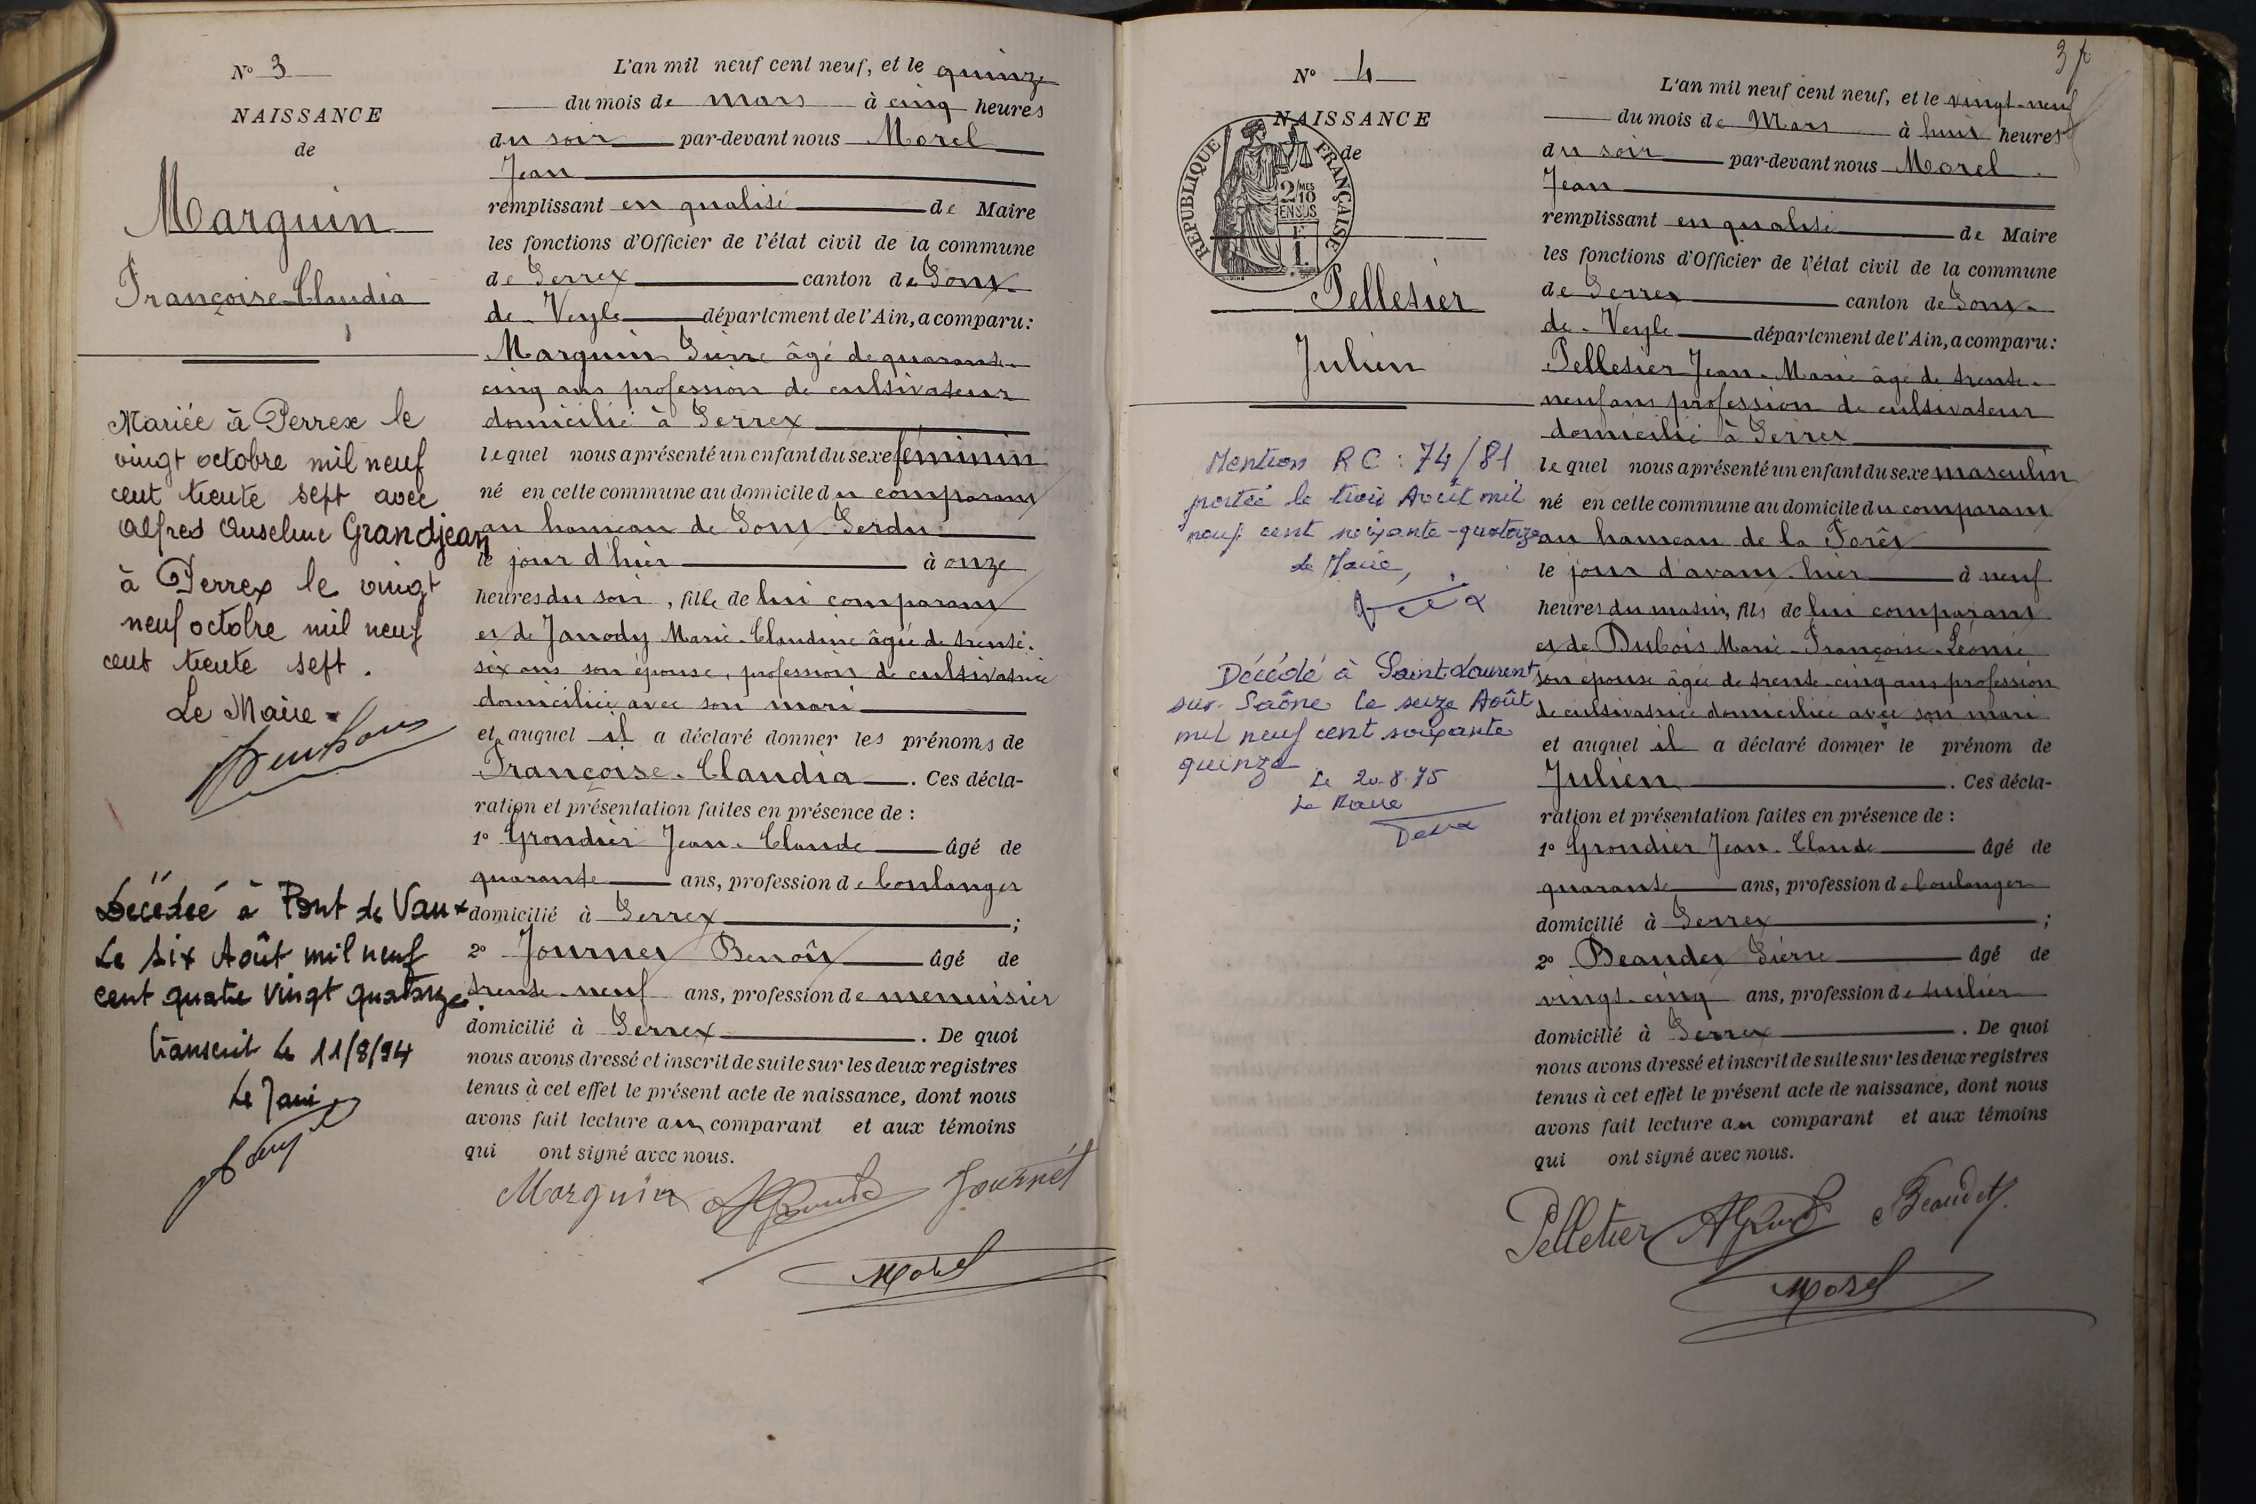 N° 3
NAISSANCE
de
Marguin
Françoise-Claudia
Mariée à Perrex le
vingt octobre mil neuf
cent trente sept avec
Alfred Anselme Grandjean
à Perrex le vingt
neuf octobre mil neuf
cent trente sept.
Le Maire
Décédée à Pont de Vaux
Le six Août mil neuf
cent quatre vingt quatorze
transcrit le 11/8/94
Le Maire
L'an mil neuf cent neuf, et le quinze
du mois de Mars à cinq heures
du soir par-devant nous Morel
Jean
remplissant en qualité de Maire
les fonctions d'Officier de l'état civil de la commune
de Perrex canton de Pont-
de-Veyle département de l'Ain, a comparu:
Marguin Pierre âgé de quarante-
cinq ans profession de cultivateur
domicilié à Perrex
lequel nous a présenté un enfant du sexe féminin
né en cette commune au domicile du comparant
au hameau de Pont Perdu
le jour d'hier à onze
heures du soir, fille de lui comparant
et de Janody Marie-Claudine âgée de trente-
six ans son épouse, profession de cultivatrice
domiciliée avec son mari
et auquel il a déclaré donner les prénoms de
Françoise-Claudia. Ces décla-
ration et présentation faites en présence de :
1° Grondier Jean-Claude âgé de
quarante ans, profession de boulanger
domicilié à Perrex ;
2° Journet Benoît âgé de
trente-neuf ans, profession de menuisier
domicilié à Perrex. De quoi
nous avons dressé et inscrit de suite sur les deux registres
tenus à cet effet le présent acte de naissance, dont nous
avons fait lecture au comparant et aux témoins
qui ont signé avec nous.
Marguin Journet
Morel
3
N° 4
NAISSANCE
de
RÉPUBLIQUE FRANÇAISE
2/10 MES
EN SUS
1 F
Pelletier
Julien
Mention RC : 74/81
portée le trois Août mil
neuf cent soixante-quatorze
Le Maire,
Décédé à Saint Laurent
sur-Saône le seize Août
mil neuf cent soixante
quinze
le 20.8.75
Le Maire
L'an mil neuf cent neuf, et le vingt-neuf
du mois de Mars à huit heures
du soir par-devant nous Morel
Jean
remplissant en qualité de Maire
les fonctions d'Officier de l'état civil de la commune
de Perrex canton de Pont-
de-Veyle département de l'Ain, a comparu:
Pelletier Jean-Marie âgé de trente-
neuf ans profession de cultivateur
domicilié à Perrex
lequel nous a présenté un enfant du sexe masculin
né en cette commune au domicile du comparant
au hameau de la Forêt
le jour d'avant-hier à neuf
heures du matin, fils de lui comparant
et de Dubois Marie-Françoise-Léonie
son épouse âgée de trente-cinq ans profession
de cultivatrice domiciliée avec son mari
et auquel il a déclaré donner le prénom de
Julien. Ces décla-
ration et présentation faites en présence de :
1° Grondier Jean-Claude âgé de
quarante ans, profession de boulanger
domicilié à Perrex ;
2° Beaudet Pierre âgé de
vingt-cinq ans, profession de
domicilié à Perrex. De quoi
nous avons dressé et inscrit de suite sur les deux registres
tenus à cet effet le présent acte de naissance, dont nous
avons fait lecture au comparant et aux témoins
qui ont signé avec nous.
Pelletier Beaudet
Morel